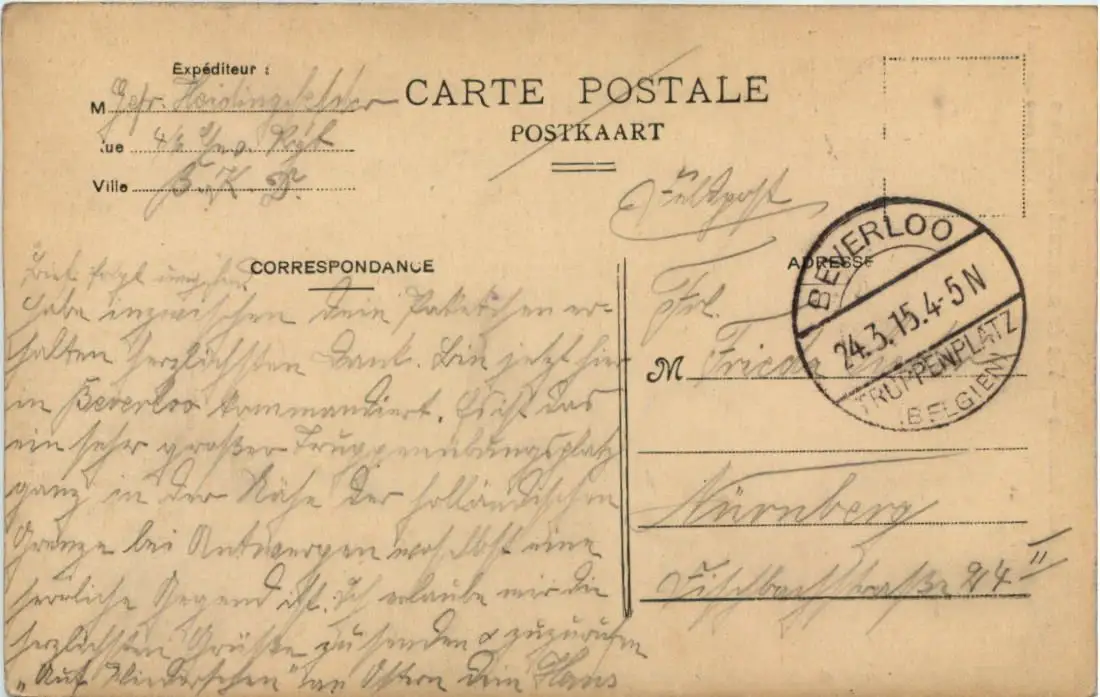 Expéditeur :
M Gefr. Heidingsfelder
Rue 4/6 Inf. Rgt.
Ville B. K. D.
CARTE POSTALE
POSTKAART
Feldpost
CORRESPONDANCE
Brief folgt umgehend.
Habe inzwischen dein Paketchen er-
halten herzlichsten Dank. Bin jetzt hier
in Beverloo kommandiert. Es ist das
ein sehr großer Truppenübungsplatz
ganz in der Nähe der holländischen
Grenze bei Antwerpen woselbst eine
herrliche Gegend ist. Ich erlaube mir die
herzlichsten Grüße zu senden & zuzurufen
„Auf Wiedersehen" an Ostern dein Hans
ADRESSE
Frl.
M Frieda
Nürnberg
Fischbachstraße 24 II
BEVERLOO
24.3.15.4-5N
TRUPPENPLATZ
(BELGIEN)